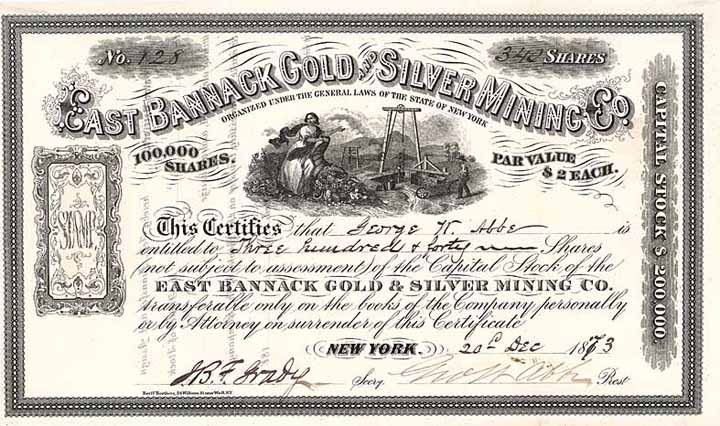 No. 128
340 SHARES
EAST BANNACK GOLD AND SILVER MINING Co.
ORGANIZED UNDER THE GENERAL LAWS OF THE STATE OF NEW YORK
100,000 SHARES.
PAR VALUE $2 EACH.
STAMP.
CAPITAL STOCK $200,000
This Certifies that George W. Abbe is
entitled to Three hundred & forty Shares
(not subject to assessment) of the Capital Stock of the
EAST BANNACK GOLD & SILVER MINING CO.
transferable only on the books of the Company personally
or by Attorney on surrender of this Certificate
NEW YORK. 20th Dec 1873
J.B.F. Grady Secry. Geo W Abbe Prest